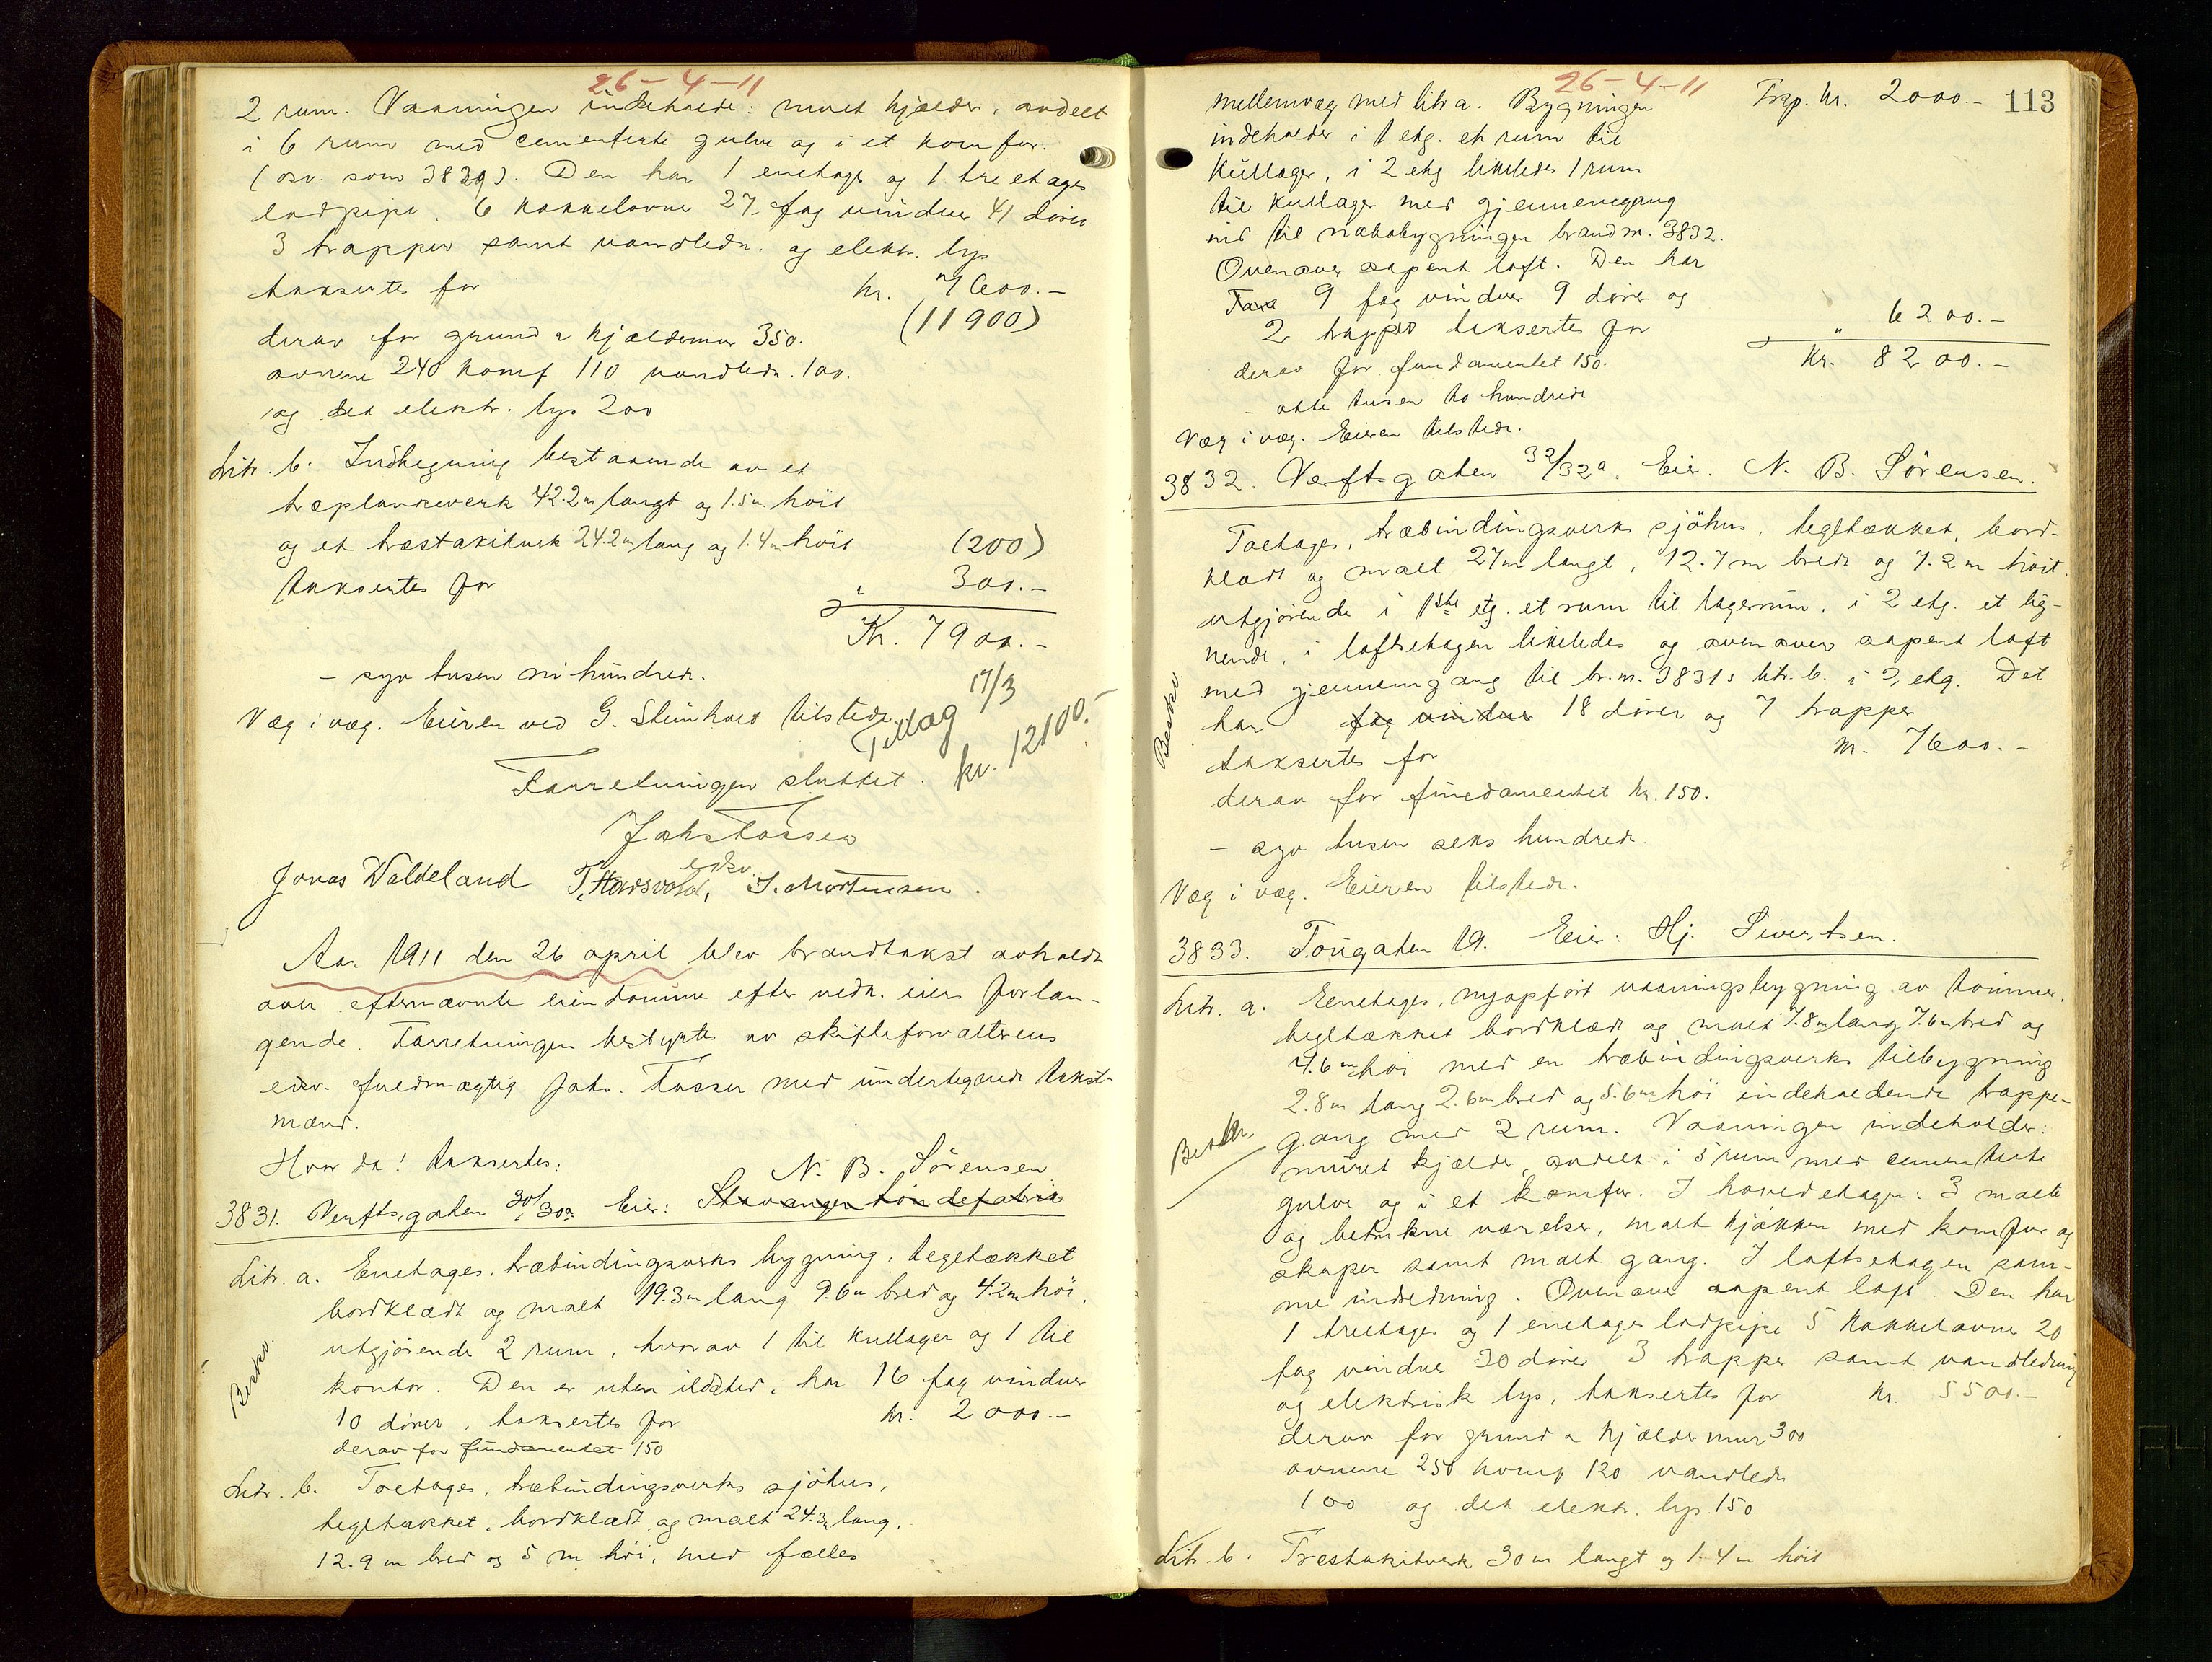 26-4-11
2 rum. Vaaningen indeholde: muret kjælder, avdelt
i 6 rum med cementerte gulve og i et komfur.
(osv. som 3829). Den har 1 enetages og 1 treetages
ladpipe. 6 kakkelovne 27 fag vinduer 41 dører
3 trapper samt vandledn. og elektr. lys
taksertes for kr. 7600.-
(11900)
derav for grund & kjældermur 350.
ovnene 240 komf 110 vandledn. 100.
og det elektr. lys 200
Litr. b. Indhegning bestaaende av et
træplankeverk 42.2m langt og 1.5m. höit
og et træstakitverk 24.2m lang og 1.4m höit
(200)
taksertes for " 300.-
Kr. 7900.-
- syv tusen ni hundrede.
Væg i væg. Eieren ved G. Steinhaes tilstede.
Tillag 17/3
kr. 12100.-
Forretningen sluttet.
Johs Tasser
edsv.
Jonas Waldeland T. Horsvold, S. Mortensen.
Aar 1911 den 26 april blev brandtakst avholdt
over efternævnte eiendomme efter vedk. eiers forlan-
gende. Forretningen bestyrtes av skifteforvalterens
edsv. fuldmægtig Johs. Tasser med undertegnede takst-
mænd.
Hvor da! taksertes:
N. B. Sörensen
3831. Verftsgaten 30/30a Eier: Stavanger tøndefabrik
Litr. a. Enetages, træbindingsverks bygning, tegltækket
bordklædt og malt 19.3m lang 9.6m bred og 4.2m höi,
utgjörende 2 rum, hvorav 1 til kullager og 1 til
kontor. Den er uten ildsted, har 16 fag vinduer
10 dører, taksertes for kr. 2000.-
derav for fundamentet 150
Beskv.
Litr. b. Toetages, træbindingsverks sjöhus,
tegltækket, bordklædt og malt 24.3m lang,
12.9m bred og 5 m höi, med fælles
26-4-11
113
mellemvæg med litr a. Bygningen Trsp. kr. 2000.-
indeholder i 1 etg. et rum til
kullager, i 2 etg likeledes 1 rum
til kullager med gjennemgang
ind til nabobygningen brandnr. 3832.
Ovenover aapent loft. Den har
Taks 9 fag vinduer 9 dører og
2 trapper taksertes for " 6200.-
derav for fundamentet 150. Kr. 8200.-
- otte tusen to hundrede
Væg i væg. Eieren tilstede.
3832. Verftsgaten 32/32a. Eier. N. B. Sörensen.
Toetages, træbindingsverks sjöhus, tegltækket, bord-
klædt og malt 27m langt, 12.7m bredt og 7.2m höit.
utgjörende i 1ste etg. et rum til lagerrum, i 2 etg. et lig-
nende, i loftsetagen likeledes og ovenover aapent loft
med gjennemgang til br.nr. 3831s litr. b. i 2 etg. Det
har fag vinduer 18 dører og 7 trapper
taksertes for kr. 7600.-
derav for fundamentet kr. 150.
- syv tusen seks hundrede.
Væg i væg. Eieren tilstede.
Beskv.
3833. Tougaten 19. Eier: Hj. Sivertsen.
Litr. a. Eenetages, nyopfört vaaningsbygning av tömmer,
tegltækket bordklædt og malt 7.8m lang 7.6m bred og
4.6m höi med en træbindingsverks tilbygning
2.8m lang 2.6m bred og 5.6m höi indeholdende trappe-
gang med 2 rum. Vaaningen indeholder:
muret kjælder, avdelt i 5 rum med cementerte
gulve og i et komfur. I hovedetagen: 3 malte
og betrukne værelser, malt kjökken med komfur og
skaper samt malt gang. I loftsetagen sam-
me indredning. Ovenover aapent loft. Den har
1 treetages og 1 enetages ladpipe 5 kakkelovne 20
fag vinduer 30 dører 3 trapper samt vandledning
og elektrisk lys, taksertes for kr. 5500.-
derav for grund & kjældermur 300
ovnene 250 komf 120 vandledn
100 og det elektr. lys 150
Litr. b. Træstakitverk 30m langt og 1.4m höit